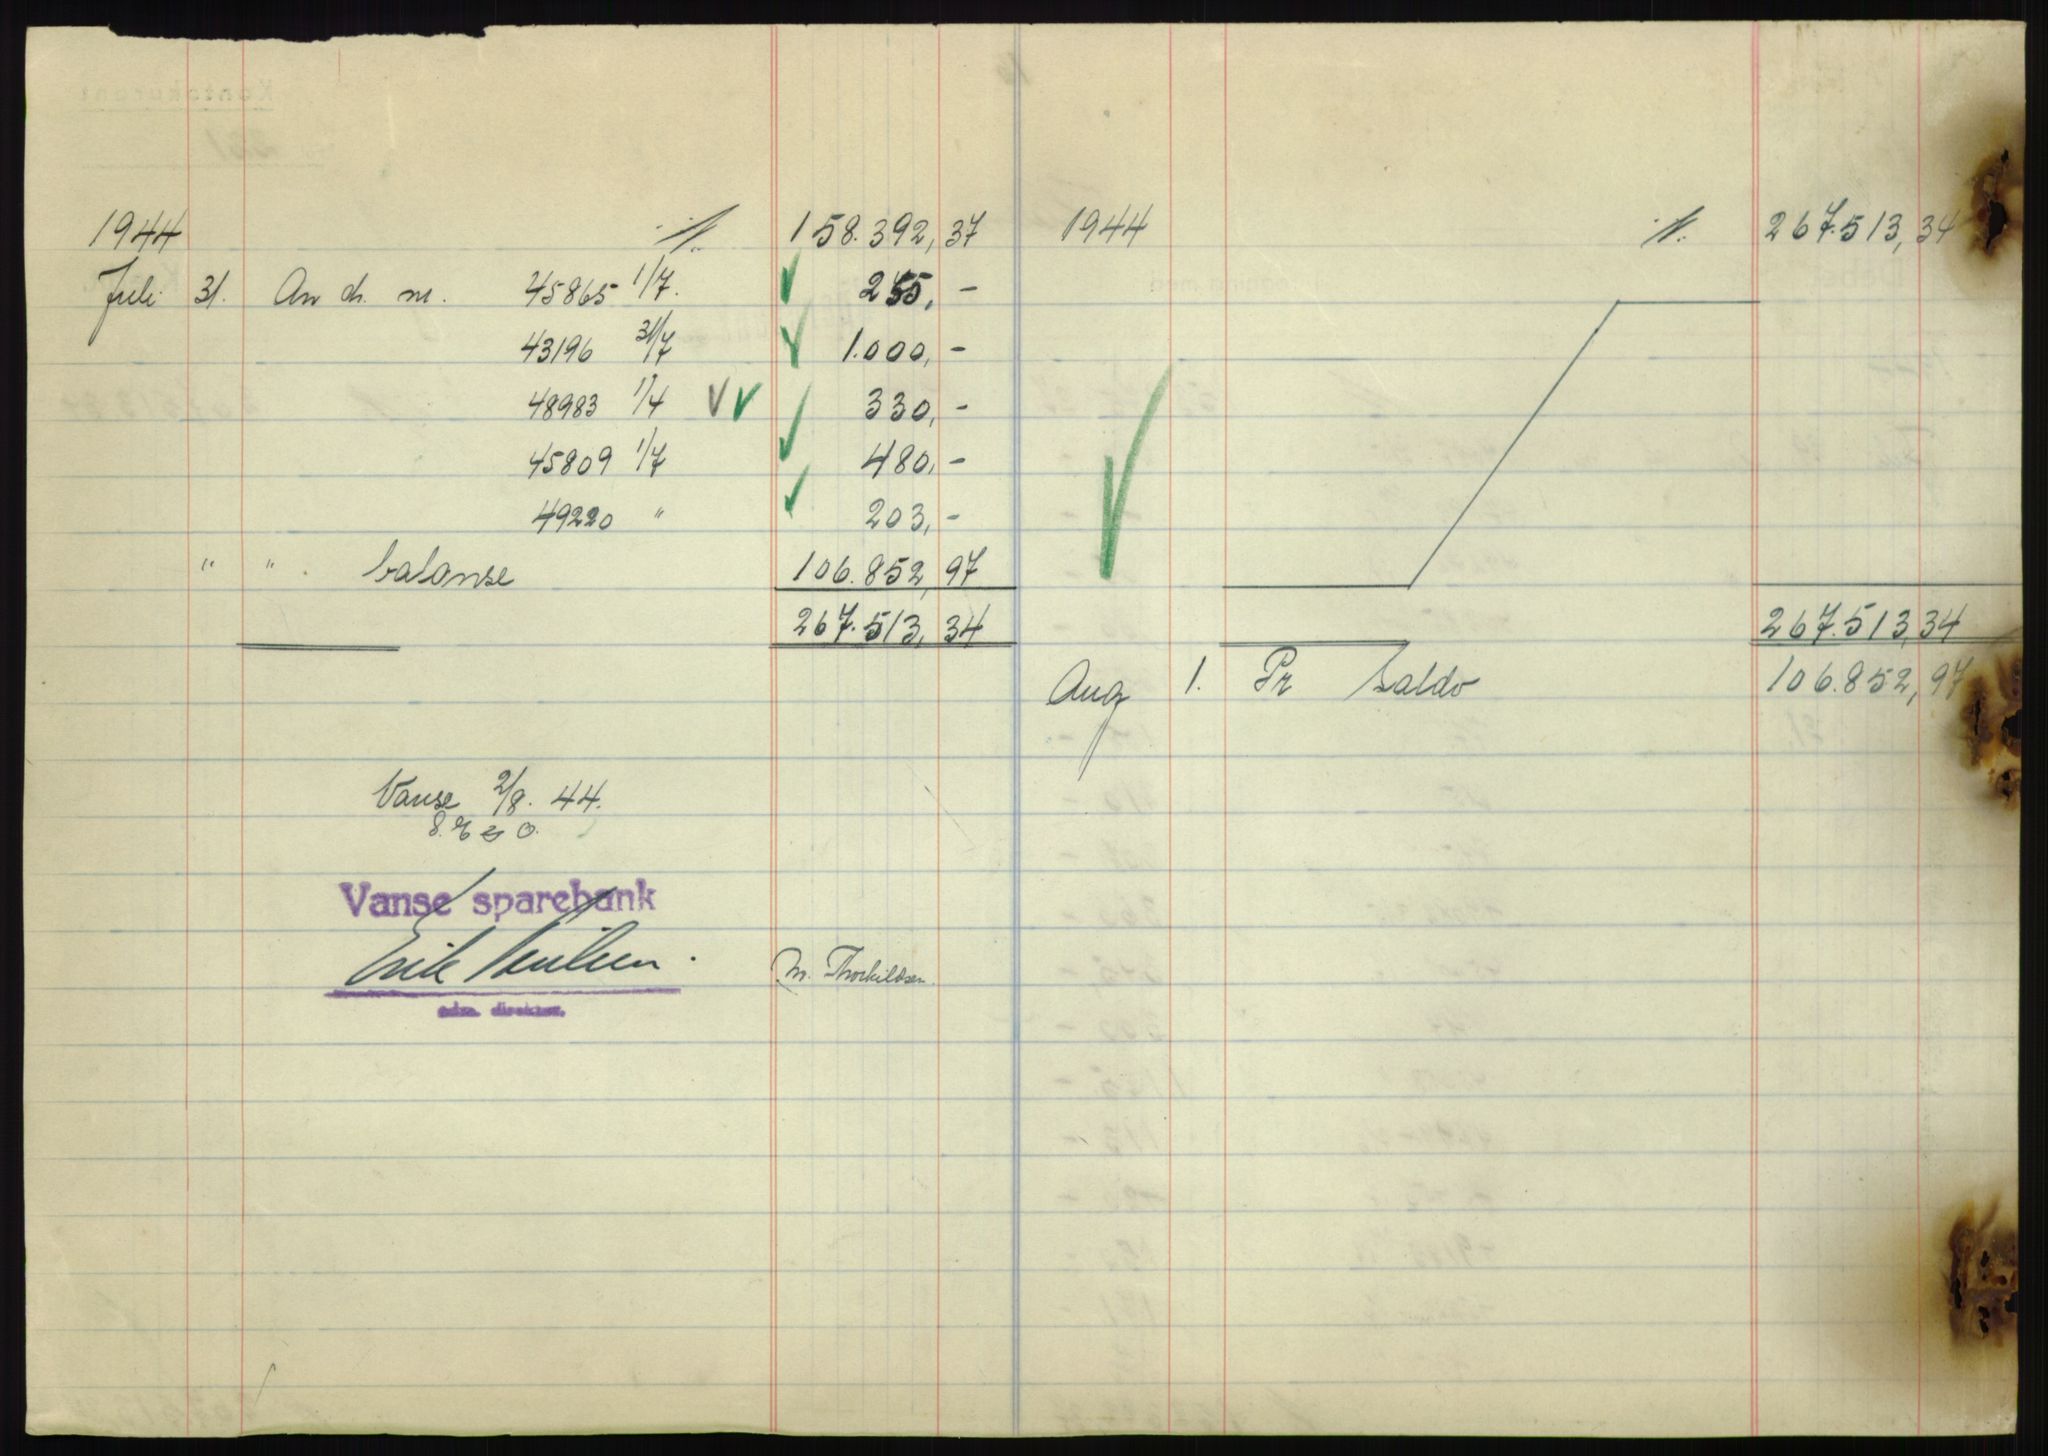 1944 158.392,37
Juli 31. An ch. nr. 45865 1/7. 255,-
43196 31/7 1.000,-
48983 1/4 330,-
45809 1/7 480,-
49220 " 203,-
" " balanse 106.852,97
267.513,34
Vanse 2/8. 44.
Vanse sparebank
Erik
adm. direktør.
M. Thorkildsen.
1944 267.513,34
267.513,34
Aug 1. Pr saldo 106.852,97